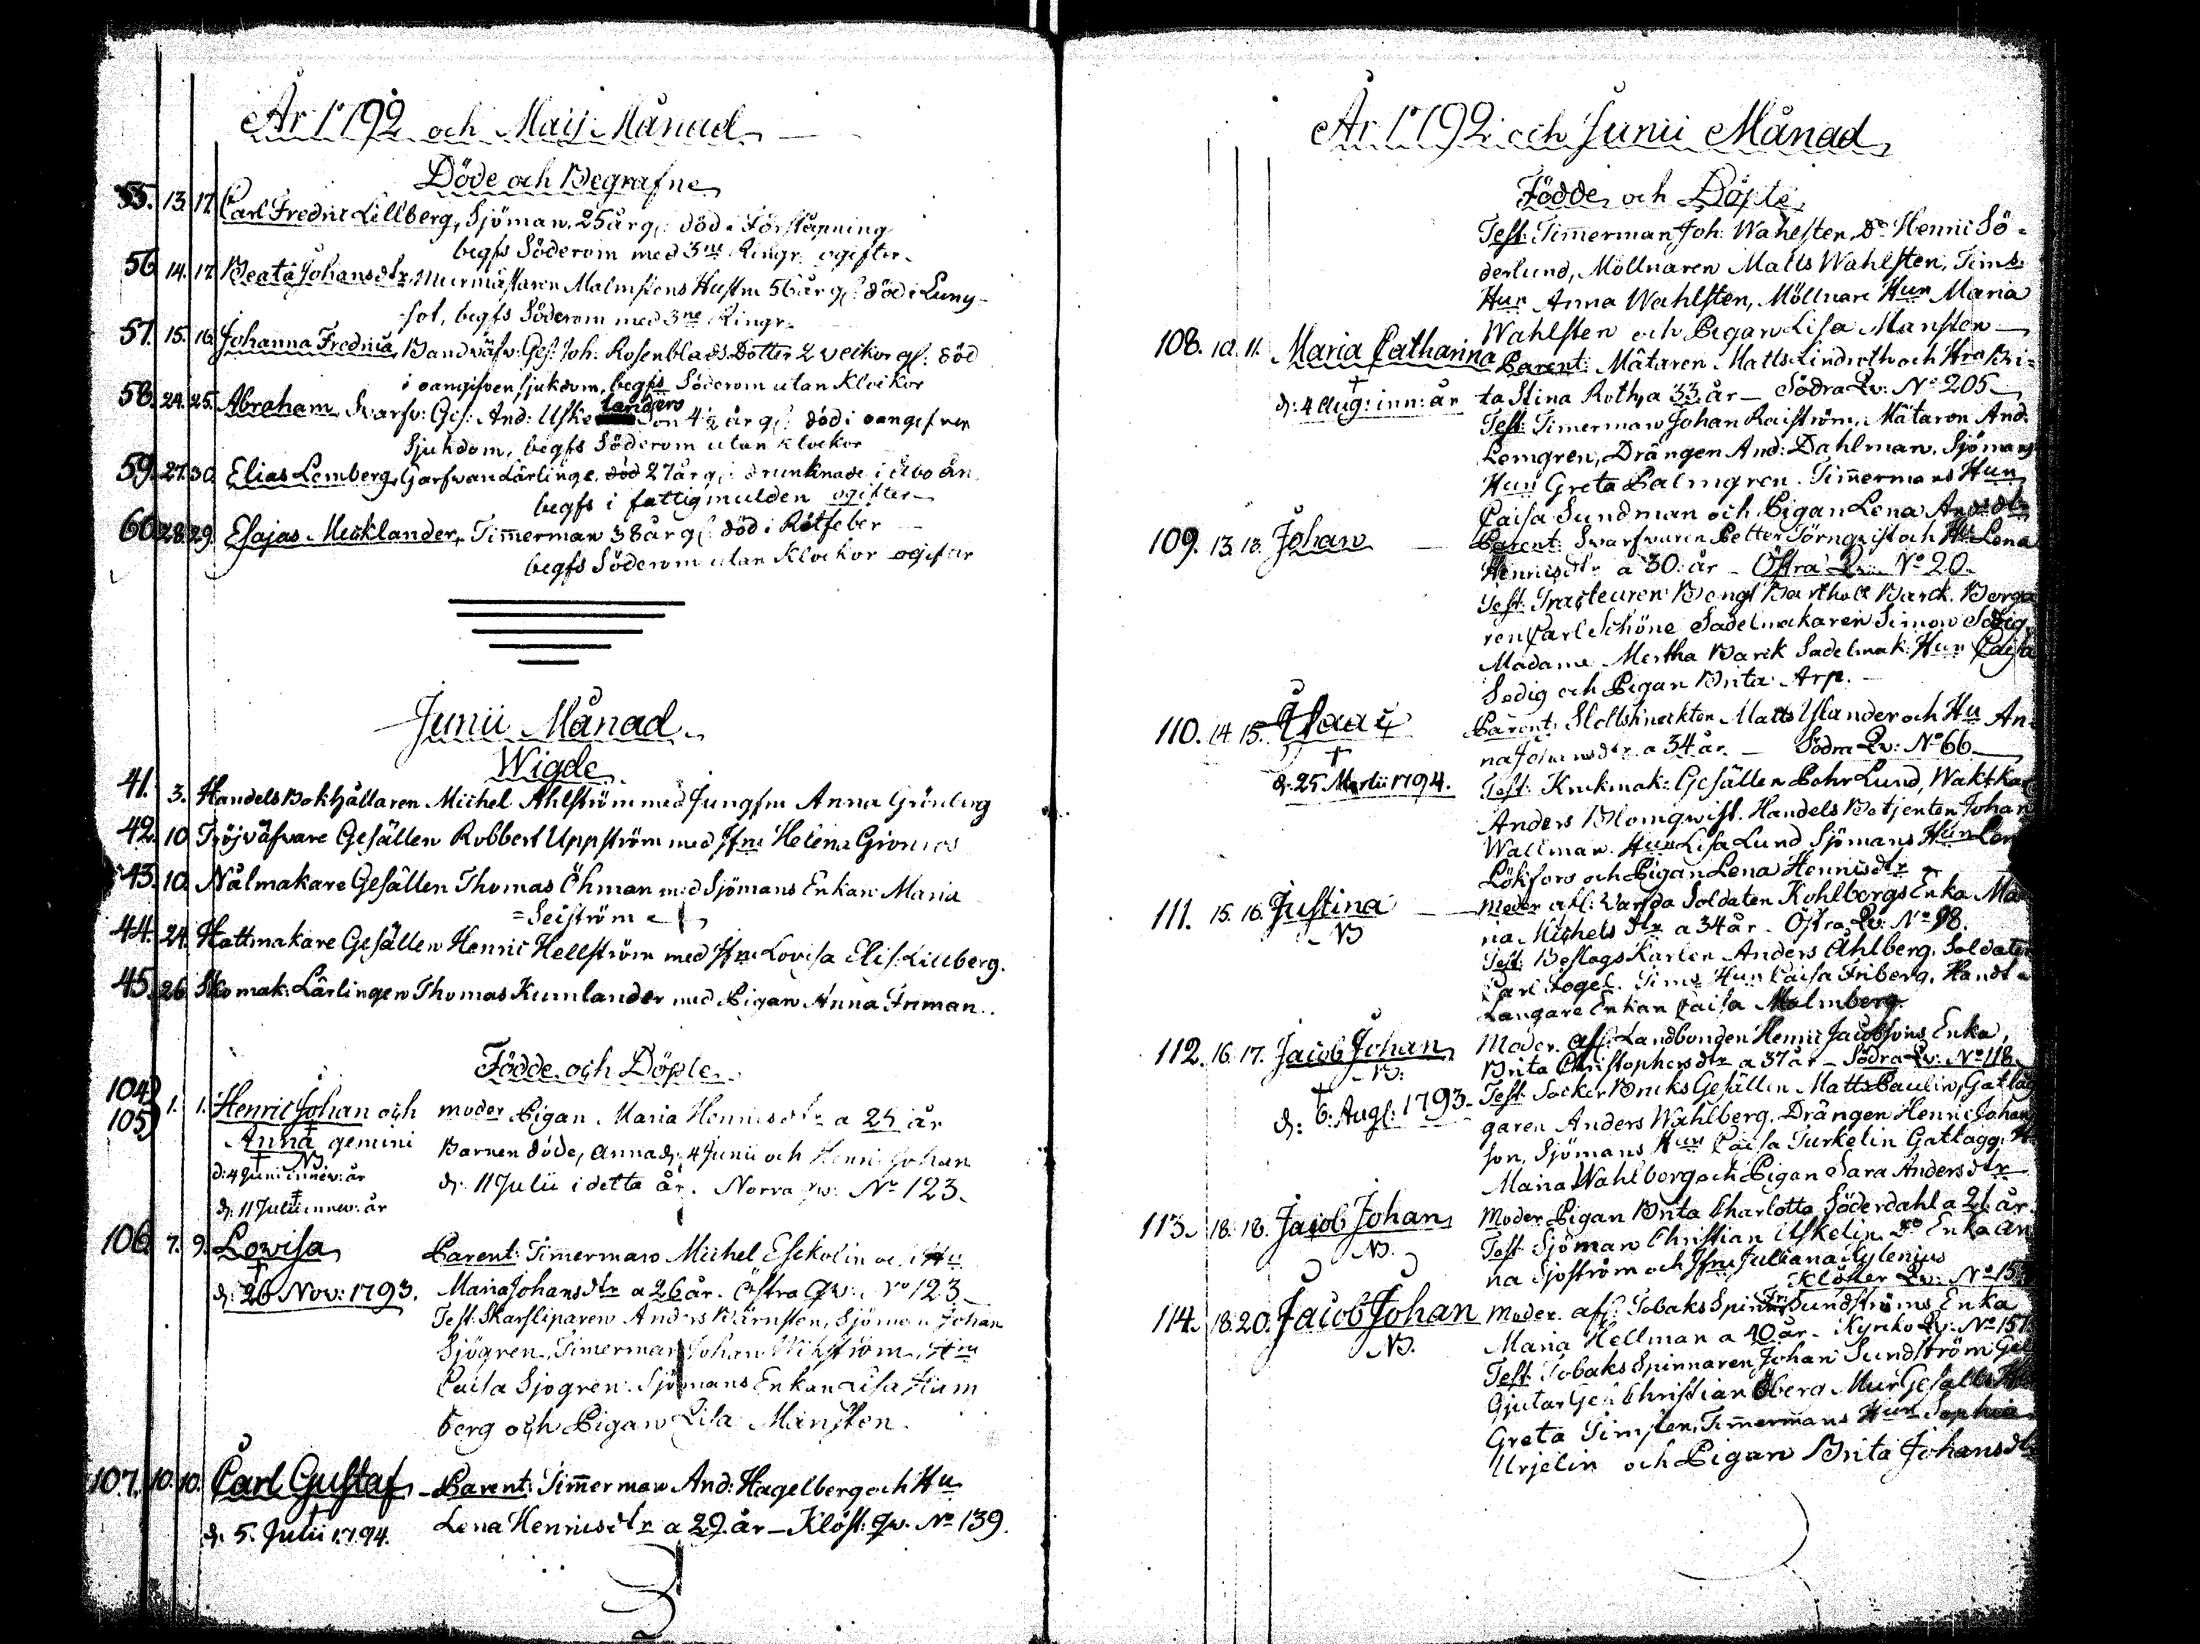 År 1792 och Maij Månad
Döde och Begrafne
55. 13. 17. Carl Fredric Lillberg, Sjöman, 25 år g: död i Förstäpning
begfs Söderom med 3ne Ringr. ogifter
56. 14. 17. Beata Johansdtr, Murmästaren Malmstens Hustru 56 år g: död i Lung-
sot, begfs Söderom med 3ne Ringr.
57. 15. 16. Johanna Fredrica, Bandväfv: Ges: Joh: Rosenblads Dotter 2 veckor g: död
i oangifven sjukdom, begfs Söderom utan Klockor
58. 24. 25. Abraham Svarfv: Ges: And: Uske landers son 4½ år g: död i oangifven
Sjukdom, begfs Söderom utan klockor
59. 27. 30. Elias Lemberg, Garfvare Lärlinge, död 27 år g: drunknade i Åbo ån
begfs i fattigmulden ogifter
60. 28. 29. Esajas Mecklander, Timmerman 38 år g: död i Rötfeber
begfs Söderom utan Klockor ogifter
Junii Månad
Wigde
41. 3. Handels Bokhållaren Michel Ahlström med Jungfru Anna Grönberg
42. 10 Tröjväfvare Gesällen Robbert Uppström med Jfru Helena
43. 10. Nålmakare Gesällen Thomas Öhman med Sjömans Enkan Maria
= Seiström
44. 24. Hattmakare Gesällen Henric Hellström med Jfru Lovisa Elis: Lillberg.
45. 26. Skomak: Lärlingen Thomas Kumlander med Pigan Anna Friman.
Födde och Döpte
104.
105. 1. 1. Henric Johan och moder Pigan Maria Henricsdtr a 25 år
Anna gemini Barnen döde, Anna d: 4 Junii och Henric Johan
NB
d: 4 Junii innev: år d: 11 Julii i detta år. Norra qv: No 123.
d: 11 Julii innev: år
106. 7. 9. Lovisa Parent: Timmerman Michel Eskolin och Hu
d: 26 Nov: 1793. Maria Johansdtr a 26 år. Östra Qv: No 123
Test: Skarsliparen Anders Bärnsten, Sjöman Johan
Sjögren, Timerman Johan Wikström, Hru
Caisa Sjögren. Sjömans Enkan Lisa Hum
berg och Pigan Lisa Mansten.
107. 10. 10. Carl Gustaf Parent: Timmerman And: Hagelberg och Hu
d: 5. Julii 1794. Lena Henricsdtr a 29 år – Klöst: Qv. No 139.
År 1792 och Junii Månad
Födde och Döpte
Test: Timmerman Joh: Wahlsten, do Henric Sö-
derlund, Möllnaren Matts Wahlsten, Tims
Hun Anna Wahlsten, Möllnare Hun Maria
Wahlsten och Pigan Lisa Mansten
108. 10. 11. Maria Catharina Parent: Mätaren Matts Lindroth och Hru Bri-
d: 4 Aug: inn: år ta Stina Roth, a 33 år – Södra Qv: No 205
Test: Timerman Johan Raiström, Mätaren And:
Lemgren, Drängen And: Dahlman, Sjömans
Hun Greta Palmgren. Timmermans Hun
Caisa Sundman och Pigan Lena Andersdtr
109. 13. 13. Johan Parent: Svarfvaren Petter Törnqvist och Hu Lena
Henricsdtr a 30 år – Östra Qv. No 20.
Test: Tracteuren Bengt Barthold Barck. Borga
ren Carl Schöne Sadelmakaren Simon Sadig,
Madame Mertha Barck Sadelmak: Hun Caisa
Sadig och Pigan Brita Arp.
110. 14. 15. Isaac Parent: Slottsknekten Matts Uslander och Hu An-
na Johansdtr a 34 år. – Södra Qv: No 66
d: 25 Martii 1794. Test: Krukmak: Gesällen Pehr Lund, Waktkar
Anders Blomqwist. Handels Betjenten Johan
Wallman. Hun Lisa Lund Sjömans Hun
Lökfors och Pigan Lena Henricsdtr
111. 15. 16. Justina Moder afl: Varfda Soldaten Kohlbergs Enka Ma
NB ria Michelsdtr a 34 år. Östra Qv: No 98.
Test: Beslags Karlen Anders Ahlberg, Soldaten
Carl Fogel. Tims Hun Caisa Friberg, Handt
Langare Enkan Caisa Malmberg
112. 16. 17. Jacob Johan Moder. afl: Landbonden Henric Jacobsons Enka,
NB: Brita Christophersdtr a 37 år – Södra Qv: No 118.
d: 6. Augs: 1793. Test: Socker Bruks Gesällen Matts Paulin, Gatläg
garen Anders Wahlberg, Drängen Henric Johan
son, Sjömans Hun Caisa Turkelin Gatlägg: H
Maria Wahlberg och Pigan Sara Andersdtr
113. 18. 18. Jacob Johan Moder Pigan Brita Charlotta Söderdahl a 26 år.
NB. Test: Sjöman Christian Uskelin. do Enka An
na Sjöström och Jfru Juliana Kylenius
Klöster Qv: No 15
114. 18. 20. Jacob Johan Moder. afl: Tobaks Spin: Sundströms Enka
NB. Maria Hellman a 40 år – Kyrko Qv: No 157
Test: Tobaks Spinnaren Johan Sundström Gel
Gjutar Ges: Christian Öberg Mur Gesälls
Greta Timsten, Timmermans Hun Sophia
Urjelin och Pigan Brita Johansdtr